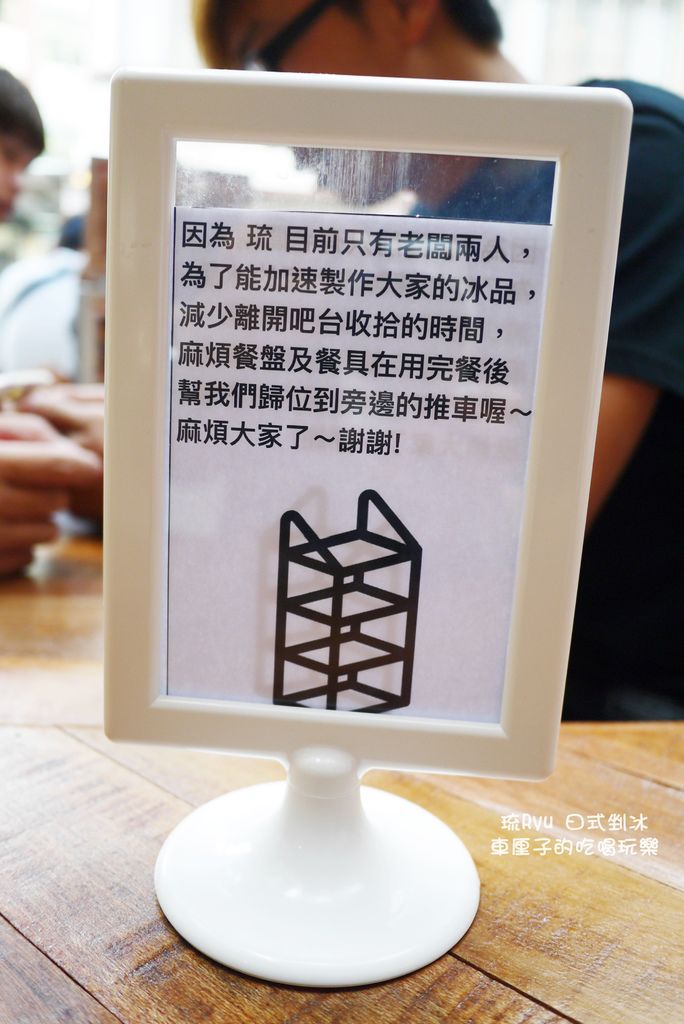 因為 琉 目前只有老闆兩人，
為了能加速製作大家的冰品，
減少離開吧台收拾的時間，
麻煩餐盤及餐具在用完餐後
幫我們歸位到旁邊的推車喔～
麻煩大家了～謝謝!
琉Ryu 日式剉冰
車厘子的吃喝玩樂